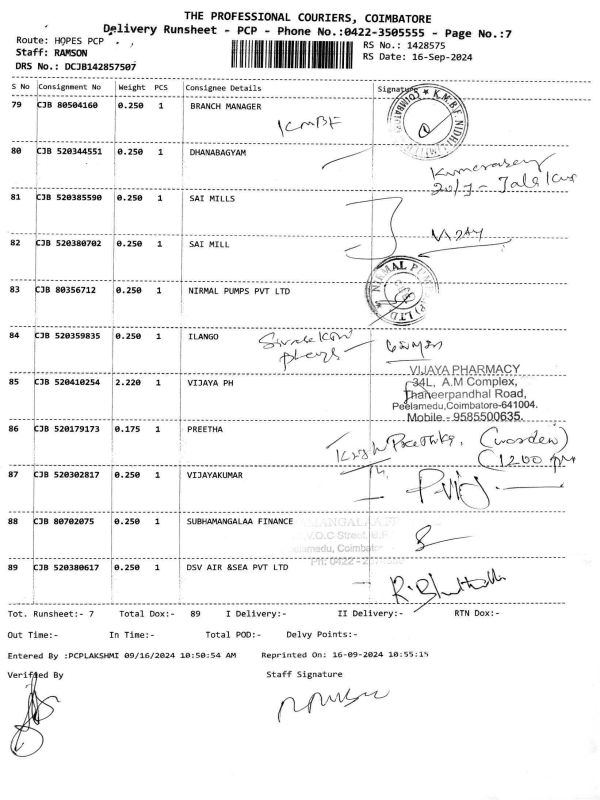 THE PROFESSIONAL COURIERS, COIMBATORE
Delivery Runsheet - PCP - Phone No.:0422-3505555 - Page No.:7
Route: HOPES PCP
RS No.: 1428575
Staff: RAMSON
RS Date: 16-Sep-2024
DRS No.: DCJB142857507
S No Consignment No Weight PCS Consignee Details Signature
79 CJB 80504160 0.250 1 BRANCH MANAGER
KMBF
K.M.B.F. NIDHI
80 CJB 520344551 0.250 1 DHANABAGYAM
81 CJB 520385590 0.250 1 SAI MILLS
82 CJB 520380702 0.250 1 SAI MILL
VIJAY
83 CJB 80356712 0.250 1 NIRMAL PUMPS PVT LTD
NIRMAL PUMPS (P) LTD
84 CJB 520359835 0.250 1 ILANGO
85 CJB 520410254 2.220 1 VIJAYA PH
VIJAYA PHARMACY
34L, A.M Complex,
Thaneerpandhal Road,
Peelamedu,Coimbatore-641004.
Mobile.- 9585500635.
86 CJB 520179173 0.175 1 PREETHA
(warden)
(12:00 pm
87 CJB 520302817 0.250 1 VIJAYAKUMAR
88 CJB 80702075 0.250 1 SUBHAMANGALAA FINANCE
V.O.C Street,
89 CJB 520380617 0.250 1 DSV AIR &SEA PVT LTD
Tot. Runsheet:- 7 Total Dox:- 89 I Delivery:- II Delivery:- RTN Dox:-
Out Time:- In Time:- Total POD:- Delvy Points:-
Entered By :PCPLAKSHMI 09/16/2024 10:50:54 AM Reprinted On: 16-09-2024 10:55:15
Verified By Staff Signature